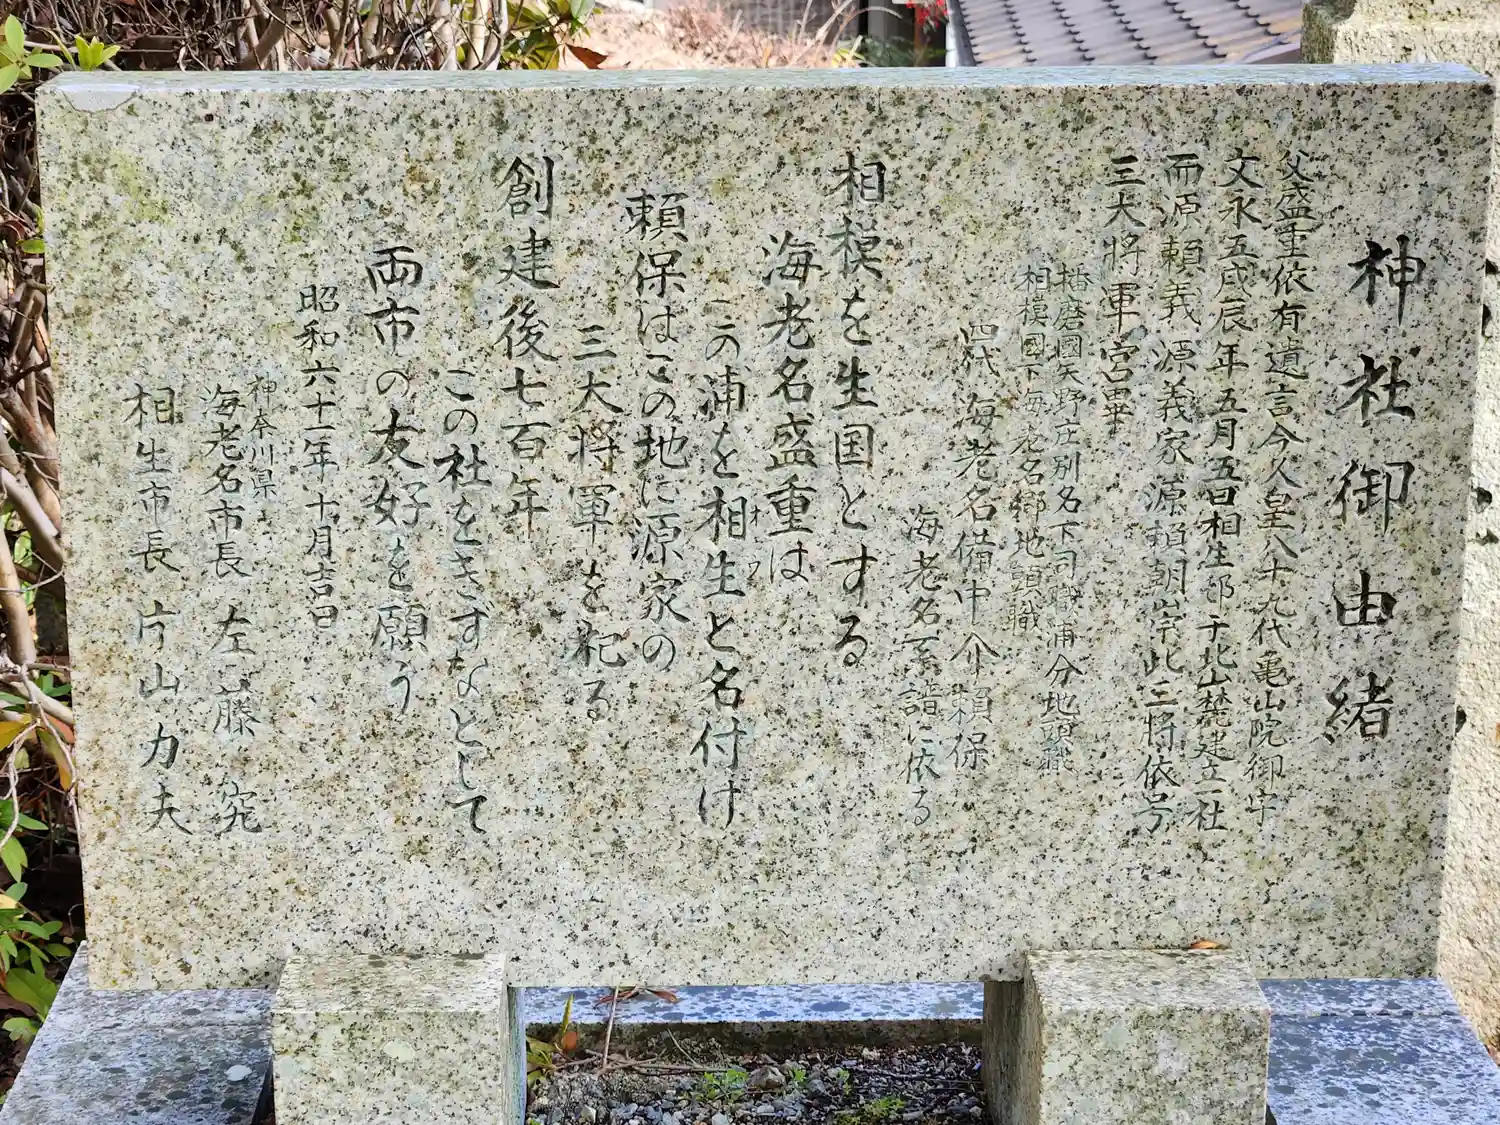 神社御由緒
父盛重依有遺言今人皇八十九代亀山院御宇
文永五戌辰年五月五日相生邑于北山麓建立一社
而源頼義源義家源頼朝崇此三将依号
三大将軍宮畢
播磨國矢野庄別名下司職浦分地頭職
相模國下海老名郷地頭職
四代 海老名備中介頼保
海老名系譜に依る
相模を生国とする
海老名盛重は
この浦を相生と名付け
オオ
頼保はこの地に源家の
三大将軍を祀る
創建後七百年
この社をきずなとして
両市の友好を願う
昭和六十一年十月吉日
神奈川県
海老名市長 左藤 究
相生市長 片山力夫